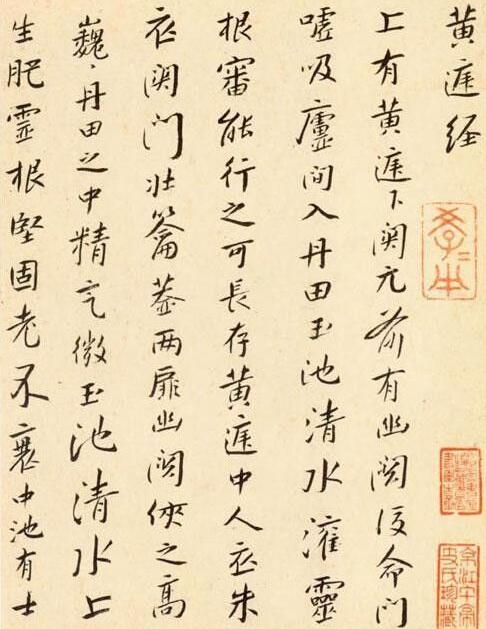 黄庭经
上有黄庭下関元前有幽闕後命門
嘘吸廬間入丹田玉池清水灌靈
根審能行之可長存黄庭中人衣朱
衣関門壮籥盖两扉幽闕侠之高
巍〻丹田之中精气微玉池清水上
生肥靈根堅固老不衰中池有士